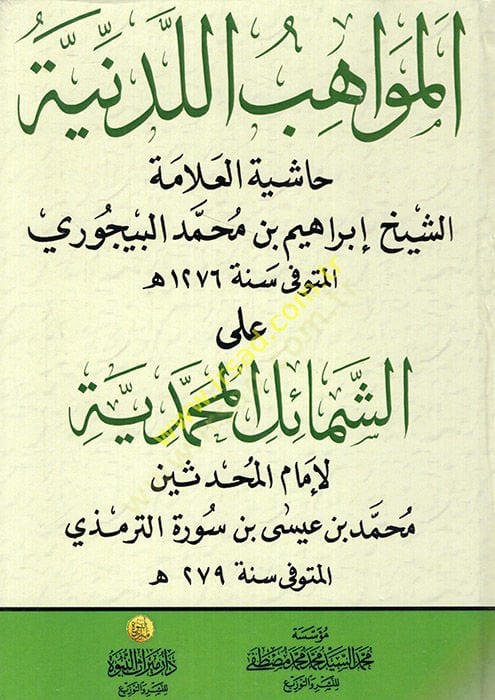 المَوَاهِبُ اللَّدُنِّيَّةُ
حاشية العلامة
الشيخ إبراهيم بن محمَّد البيجوري
المتوفى سنة ١٢٧٦ هـ
على
الشَّمَائِلِ المُحَمَّدِيَّةِ
لإمام المحدثين
محمَّد بن عيسى بن سورة الترمذي
المتوفى سنة ٢٧٩ هـ
مؤسسة
محمد السيد محمد محمد مصطفى
للنشر والتوزيع
دار ميراث النبوة
للنشر والتوزيع